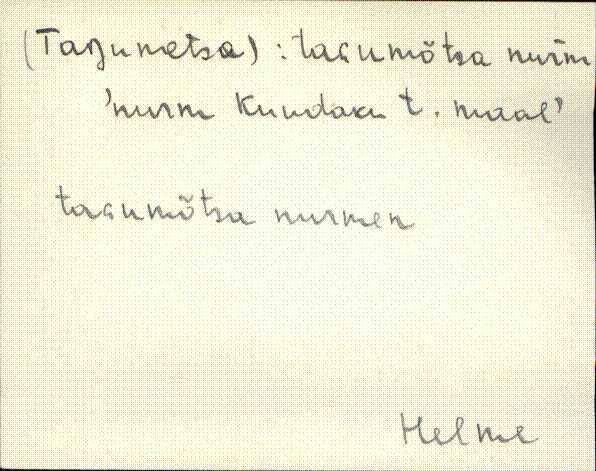 (Tagumetsa) : tagumõtsa nurm
'nurm Kundaku t. maal'
tagumõtsa nurmen
Helme